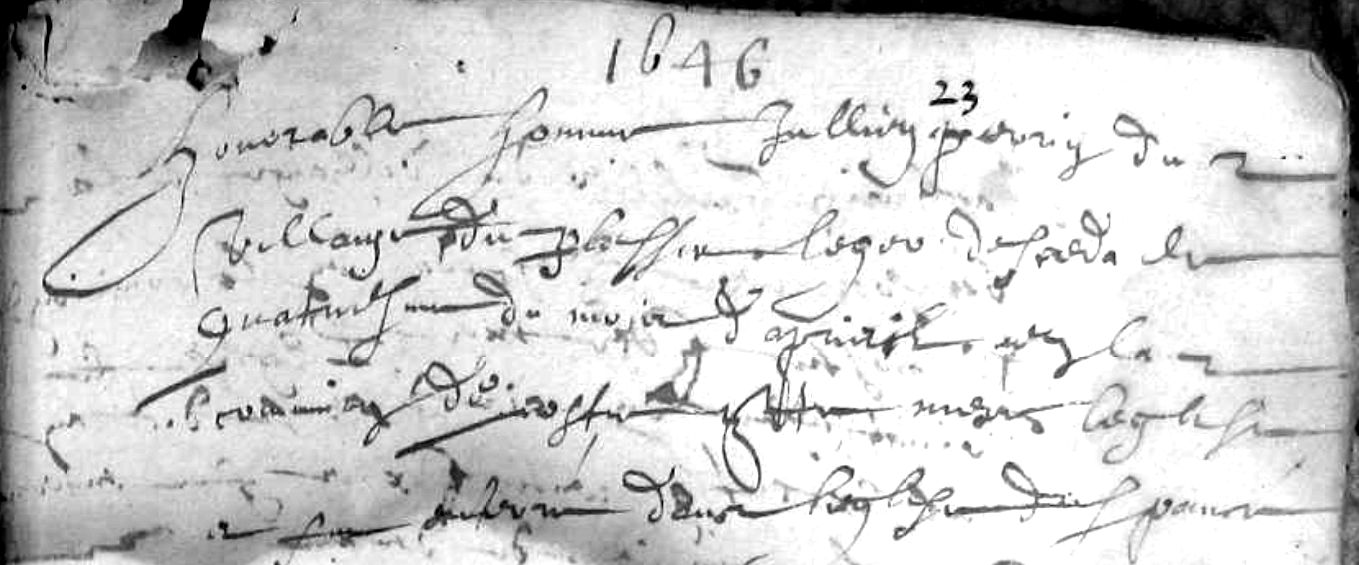 1646
23
honorable homme Jullien perrin du
village du plessix leger deceda le
quatriesme du mois d apvril en la
communion de nostre mere leglise
et fut enterre dans leglise dud